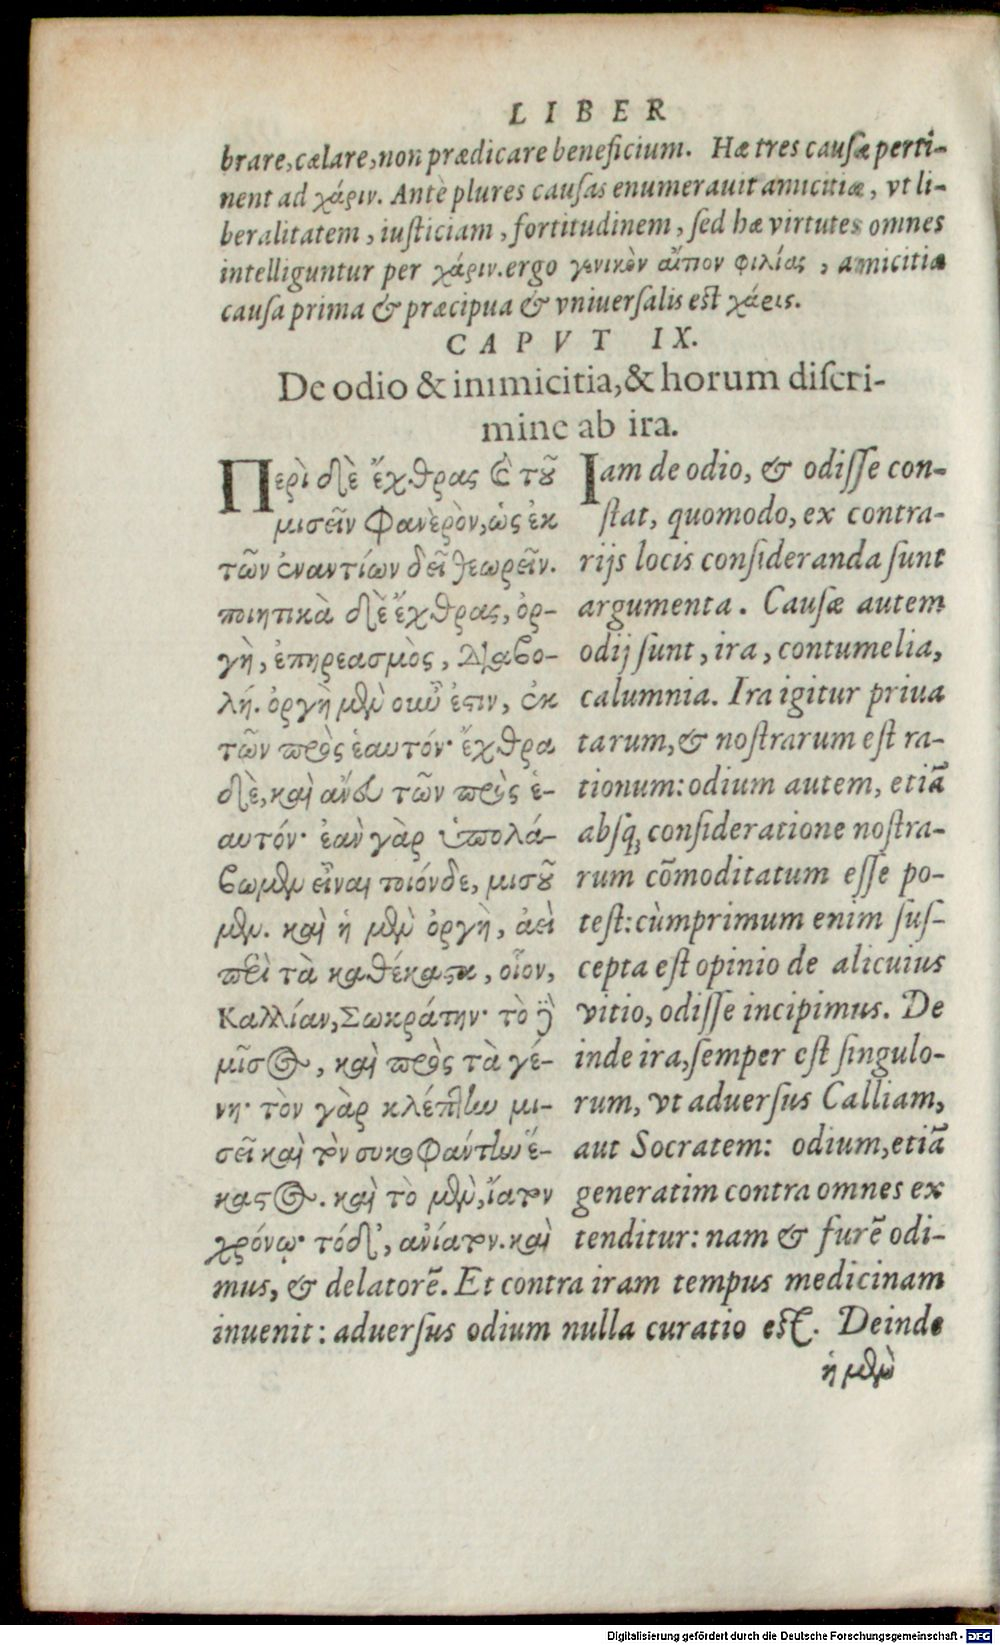 LIBER
brare, cælare, non prædicare beneficium. Hæ tres causæ perti-
nent ad χάριν. Antè plures causas enumerauit amicitiæ, vt li-
beralitatem, iusticiam, fortitudinem, sed hæ virtutes omnes
intelliguntur per χάριν. ergo γενικὸν αἴτιον φιλίας, amicitiæ
causa prima & præcipua & vniuersalis est χάρις.
CAPVT IX.
De odio & inimicitia, & horum discri-
mine ab ira.
Περὶ δὲ ἔχθρας καὶ τοῦ
μισεῖν φανερὸν, ὡς ἐκ
τῶν ἐναντίων δεῖ θεωρεῖν.
ποιητικὰ δὲ ἔχθρας, ὀρ-
γὴ, ἐπηρεασμὸς, διαβο-
λή. ὀργὴ μὲν οὖν ἐστιν, ἐκ
τῶν πρὸς ἑαυτόν· ἔχθρα
δὲ, καὶ ἄνευ τῶν πρὸς ἑ-
αυτόν· ἐὰν γὰρ ὑπολά-
βωμεν εἶναι ποιόνδε, μισοῦ
μεν. καὶ ἡ μὲν ὀργὴ, ἀεὶ
περὶ τὰ καθέκαστα, οἷον,
Καλλίαν, Σωκράτην· τὸ δὲ
μῖσος, καὶ πρὸς τὰ γέ-
νη· τὸν γὰρ κλέπτην μι-
σεῖ καὶ τὸν συκοφάντην ἕ-
καστος. καὶ τὸ μὲν, ἰατὸν
χρόνῳ· τόδ', ἀνίατον. καὶ
Iam de odio, & odisse con-
stat, quomodo, ex contra-
rijs locis consideranda sunt
argumenta. Causæ autem
odij sunt, ira, contumelia,
calumnia. Ira igitur priua
tarum, & nostrarum est ra-
tionum: odium autem, etiā
absq; consideratione nostra-
rum cōmoditatum esse po-
test: cùmprimum enim sus-
cepta est opinio de alicuius
vitio, odisse incipimus. De
inde ira, semper est singulo-
rum, vt aduersus Calliam,
aut Socratem: odium, etiā
generatim contra omnes ex
tenditur: nam & furē odi-
mus, & delatorē. Et contra iram tempus medicinam
inuenit: aduersus odium nulla curatio est. Deinde
ἡ μὲν
Digitalisierung gefördert durch die Deutsche Forschungsgemeinschaft - DFG